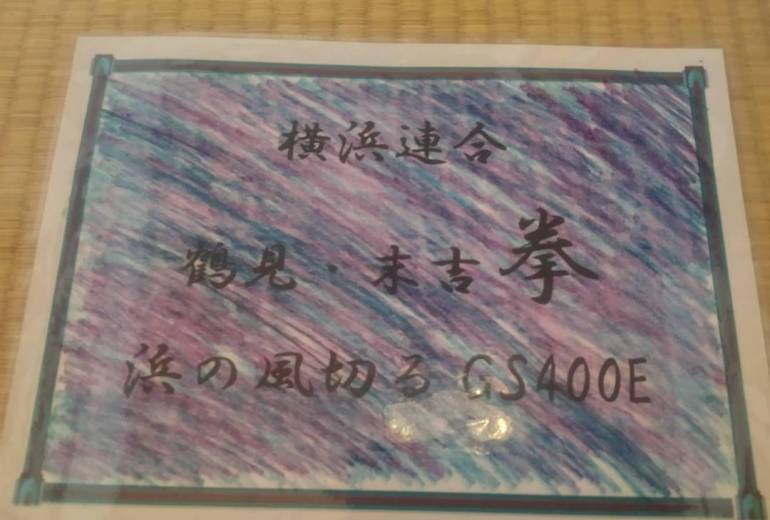 横浜連合
鶴見・末吉拳
浜の風切るGS400E